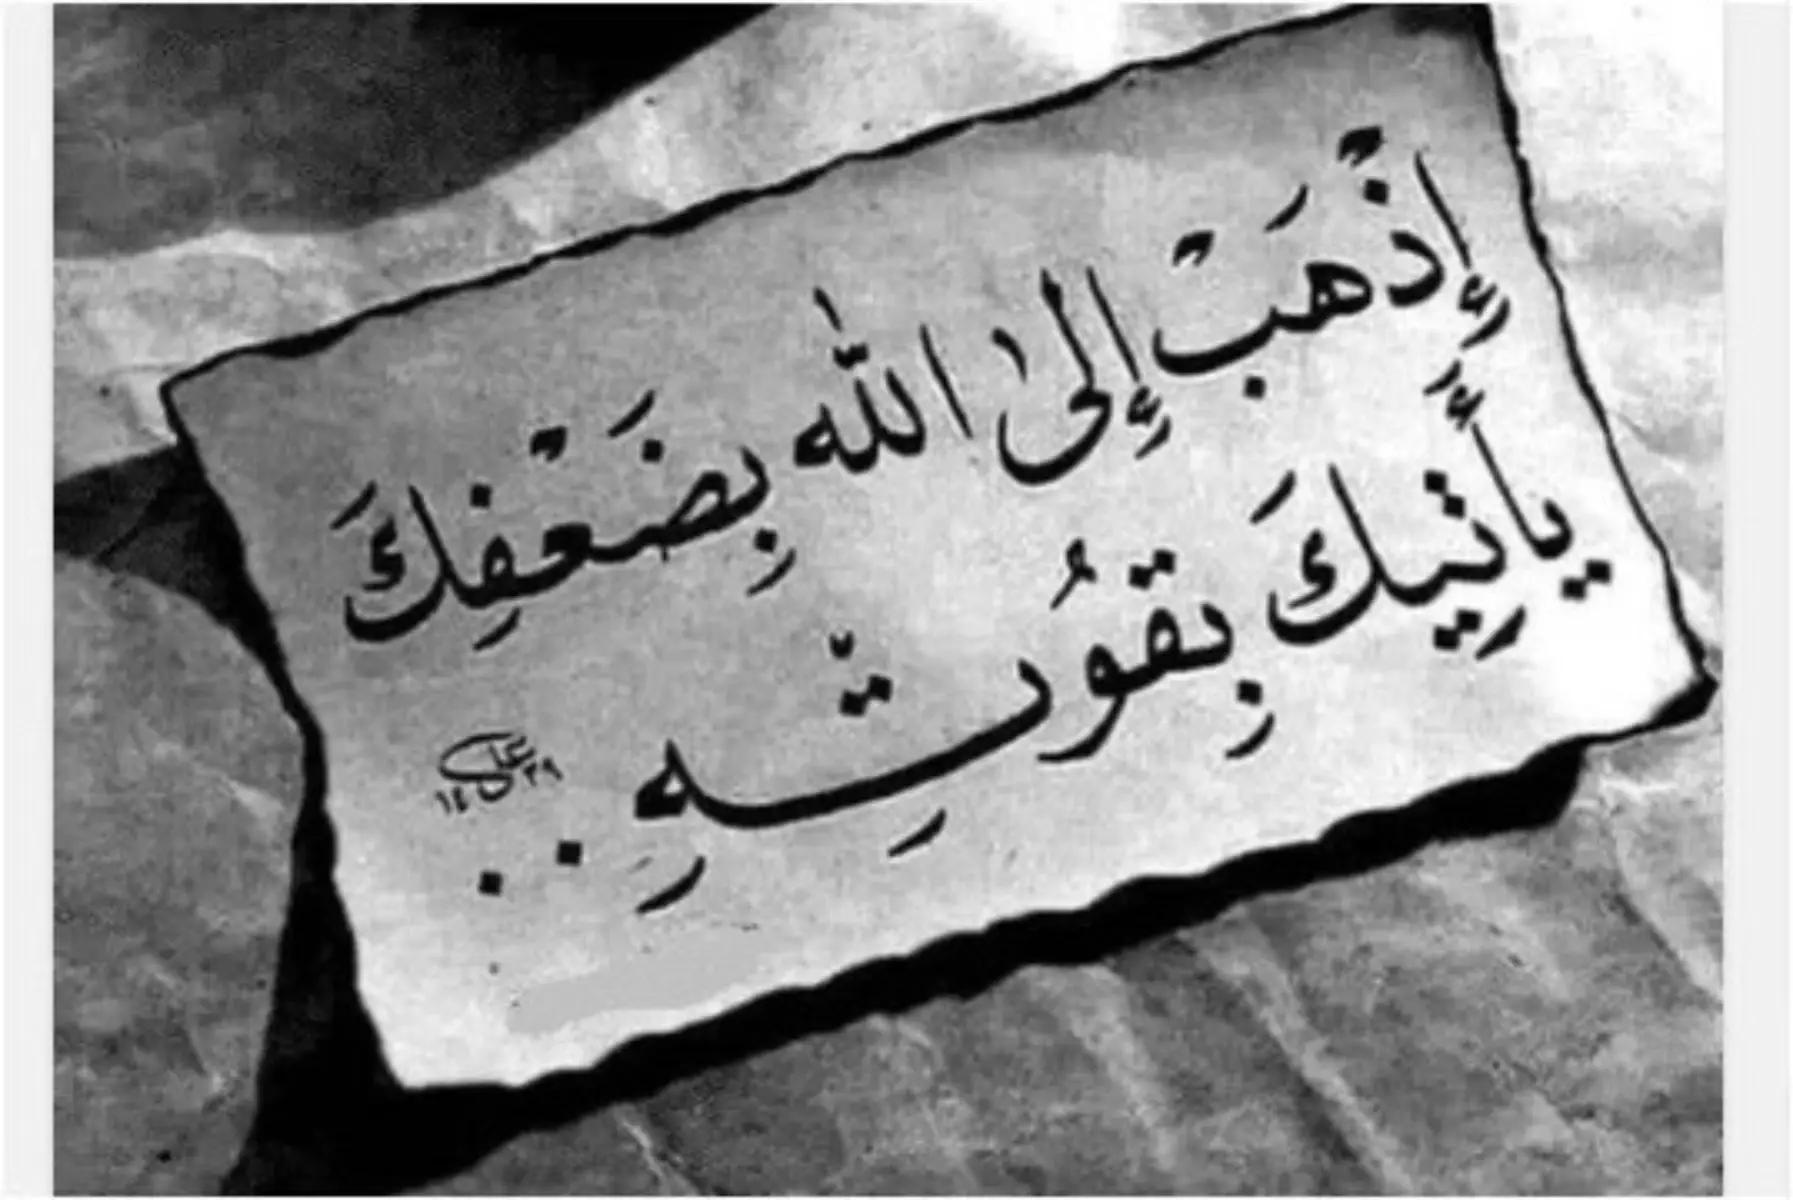 إِذْهَبْ إِلىٰ اللّٰه بِضَعْفِكَ
يأَتِيكَ بِقُوتِّهِ ..
١٤٣٩